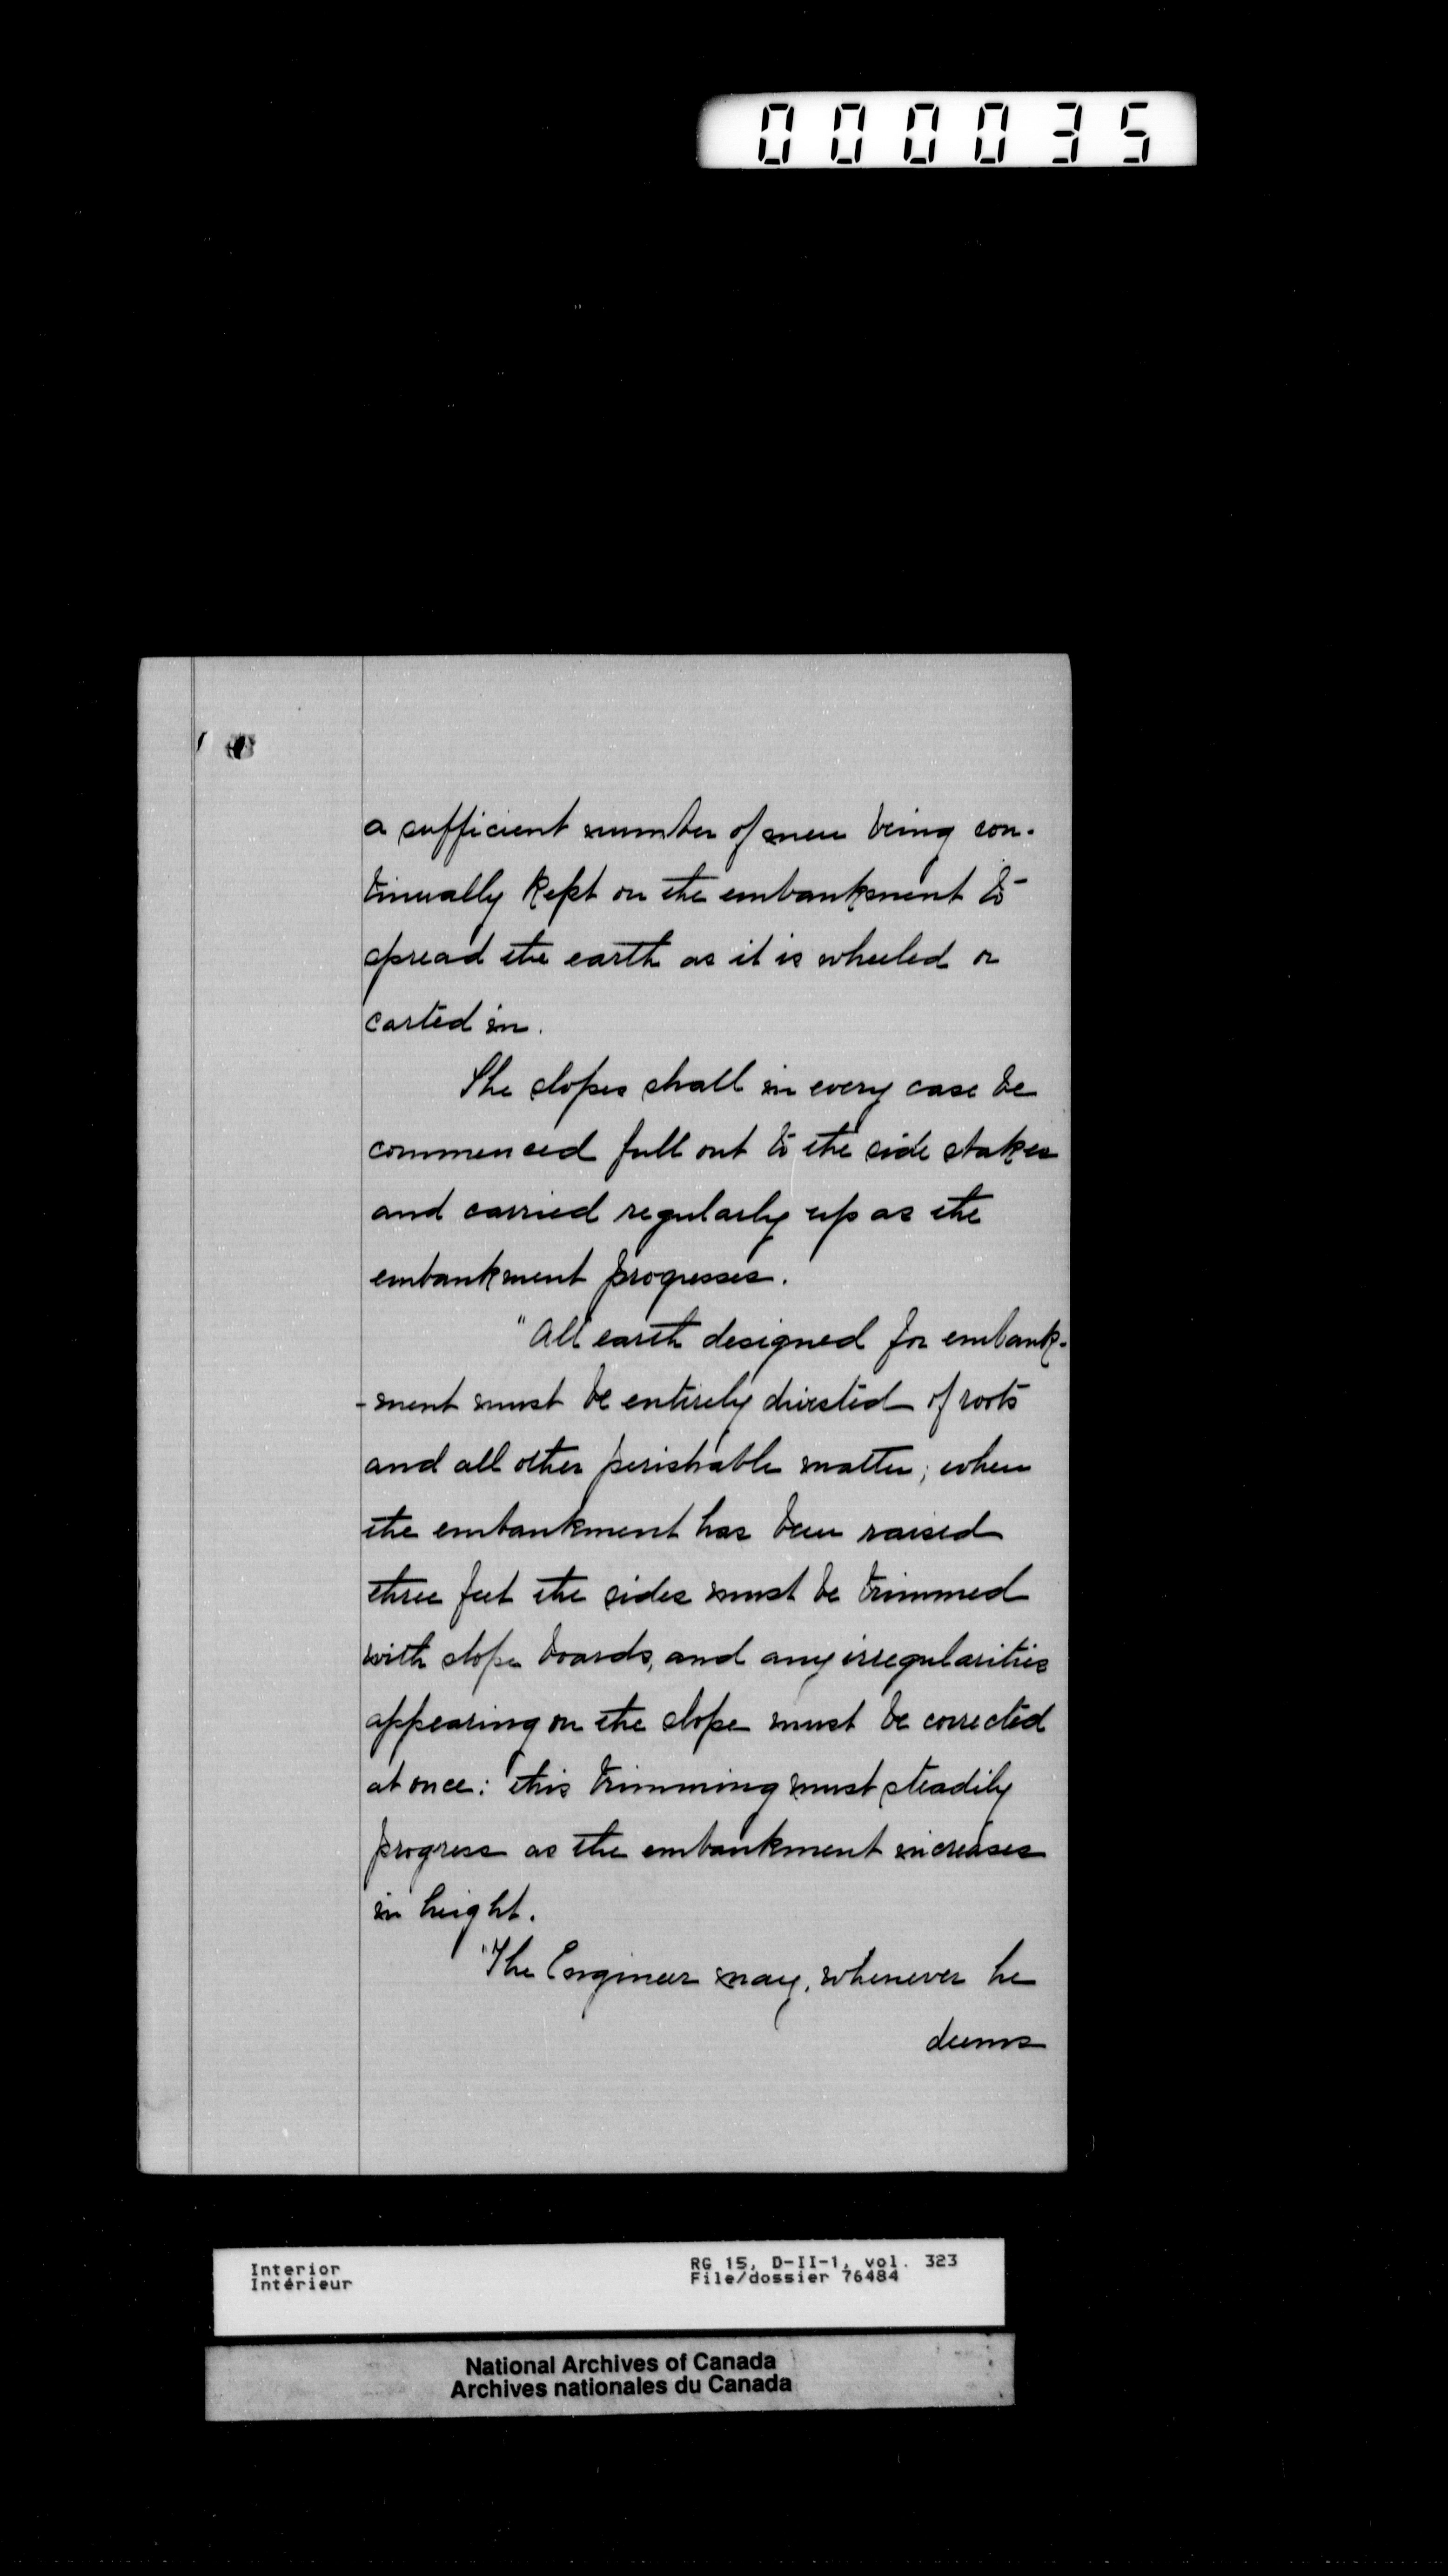 000035
a sufficient number of men being con-
tinually kept on the embankment to
spread the earth as it is wheeled or
carted in.
The slopes shall in every case be
commenced full out to the side stakes
and carried regularly up as the
embankment progresses.
"All earth designed for embank-
-ment must be entirely divested of roots
and all other perishable matter; when
the embankment has been raised
three feet the sides must be trimmed
with slope boards, and any irregularities
appearing on the slope must be corrected
at once: this trimming must steadily
progress as the embankment increases
in height.
"The Engineer may, whenever he
deems
Interior
Intérieur
RG 15, D-II-1, vol. 323
File/dossier 76484
National Archives of Canada
Archives nationales du Canada